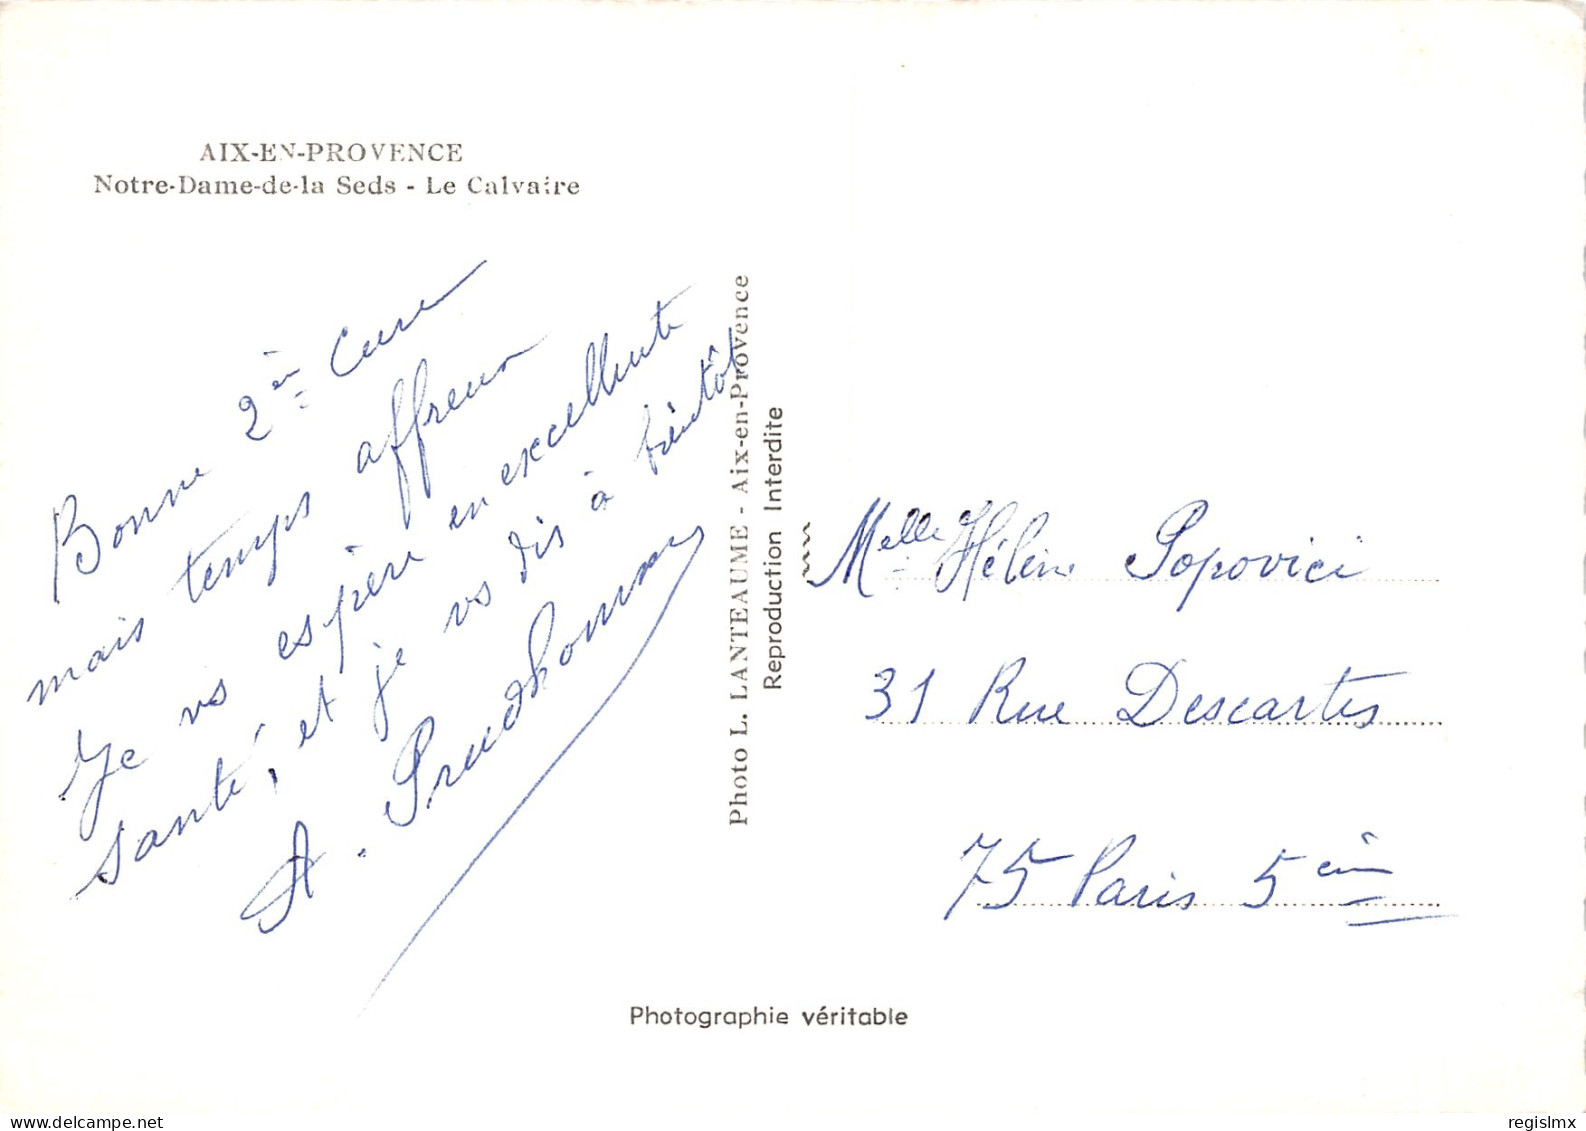 AIX-EN-PROVENCE
Notre-Dame-de-la Seds - Le Calvaire
Bonne 2èm Cure
mais temps affreux
Je vs espère en excellente
santé, et je vs dis à bientôt
A. Prudhomme
Photo L. LANTEAUME - Aix-en-Provence
Reproduction Interdite
Melle Hélène Popovici
31 Rue Descartes
75 Paris 5èm
Photographie véritable
delcampe.net
regislmx